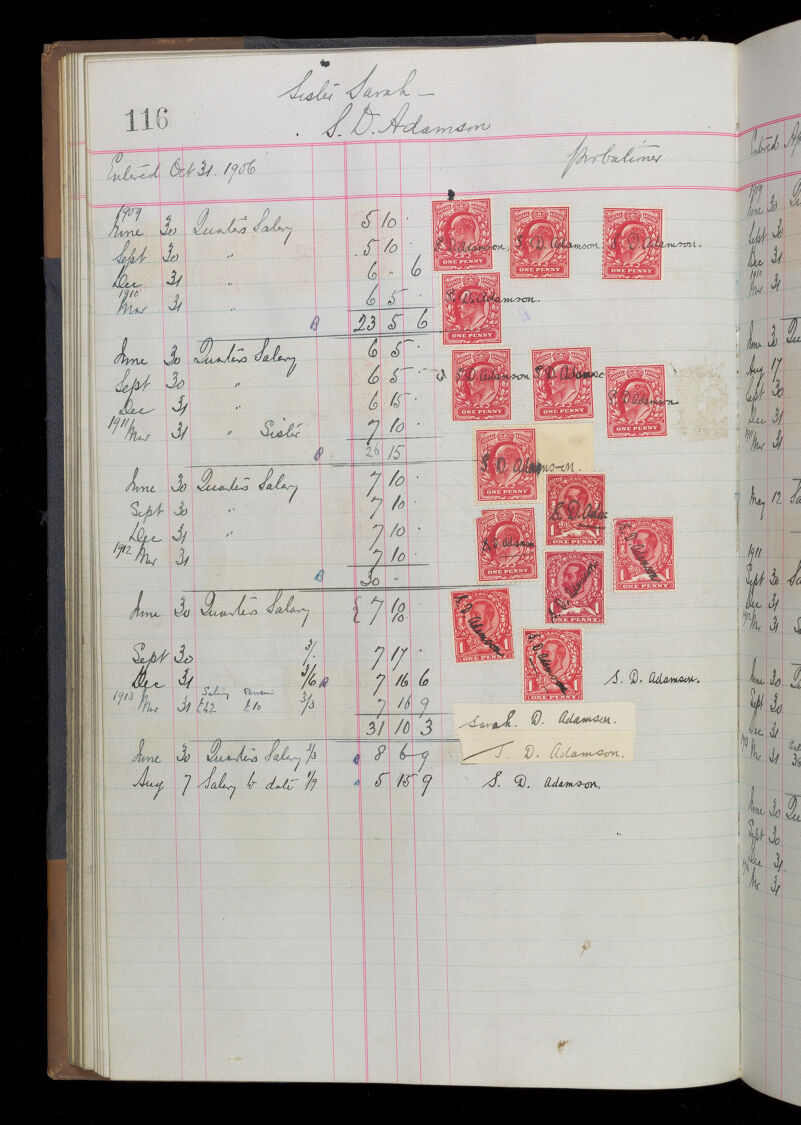 116
Sister Sarah -
S. D. Adamson
Entered Oct 31. 1906 Probationer
1909
June 30 Quarter's Salary 5 10 ·
Sept 30 " 5 10 ·
Dec 31 " 6 - 6
1910
Mar 31 " 6 5 ·
B 23 5 6
June 30 Quarter's Salary 6 5 ·
Sept 30 " 6 5 ·
Dec 31 " 6 15 ·
1911 Mar 31 " Sister 7 10 ·
B 26 15
June 30 Quarter's Salary 7 10 ·
Sept 30 " 7 10 ·
Dec 31 " 7 10 ·
1912 Mar 31 7 10 ·
B 30 -
June 30 Quarter's Salary { 7 10
10
Sept 30 3/- 7 17 ·
Dec 31 3/6 7 16 6
1913 Mar 31 Salary £42 Pension £10 3/3 7 16 9
31 10 3
June 30 Quarter's Salary 3/3 8 6 9
Aug 7 Salary to date 1/9 5 15 9
S. D. Adamson. S. D. Adamson S. D. Adamson.
ONE PENNY ONE PENNY ONE PENNY
S. D. Adamson.
ONE PENNY
S. D. Adamson S. D. Adamso S. D. Adamson
ONE PENNY ONE PENNY ONE PENNY
S. D. Adamson.
ONE PENNY
S. D. Adam
1 ONE PENNY 1
S. D. Adamson
ONE PENNY
S. D. Adamson
1 ONE PENNY 1
S. D. Adamson
1 ONE PENNY 1
S. D. Adamson
1 ONE PENNY 1
S. D. Adamson
1 ONE PENNY 1
S. D. Adamson.
Sarah. D. Adamson.
S. D. Adamson.
S. D. Adamson.
Entered Ap
1909
June 30 Qu
Sept 30
Dec 31
1910
Mar 31
June 30 Qu
Aug 17
Sept 30
Dec 31
1911 Mar 31
May 12 Sa
1911
Sept 30 Sa
Dec 31
1912 Mar 31
June 30 Qu
Sept 30
Dec 31
1913 Mar 31
June 30 Qu
Sept 30
Dec 31.
1914 Mar 31